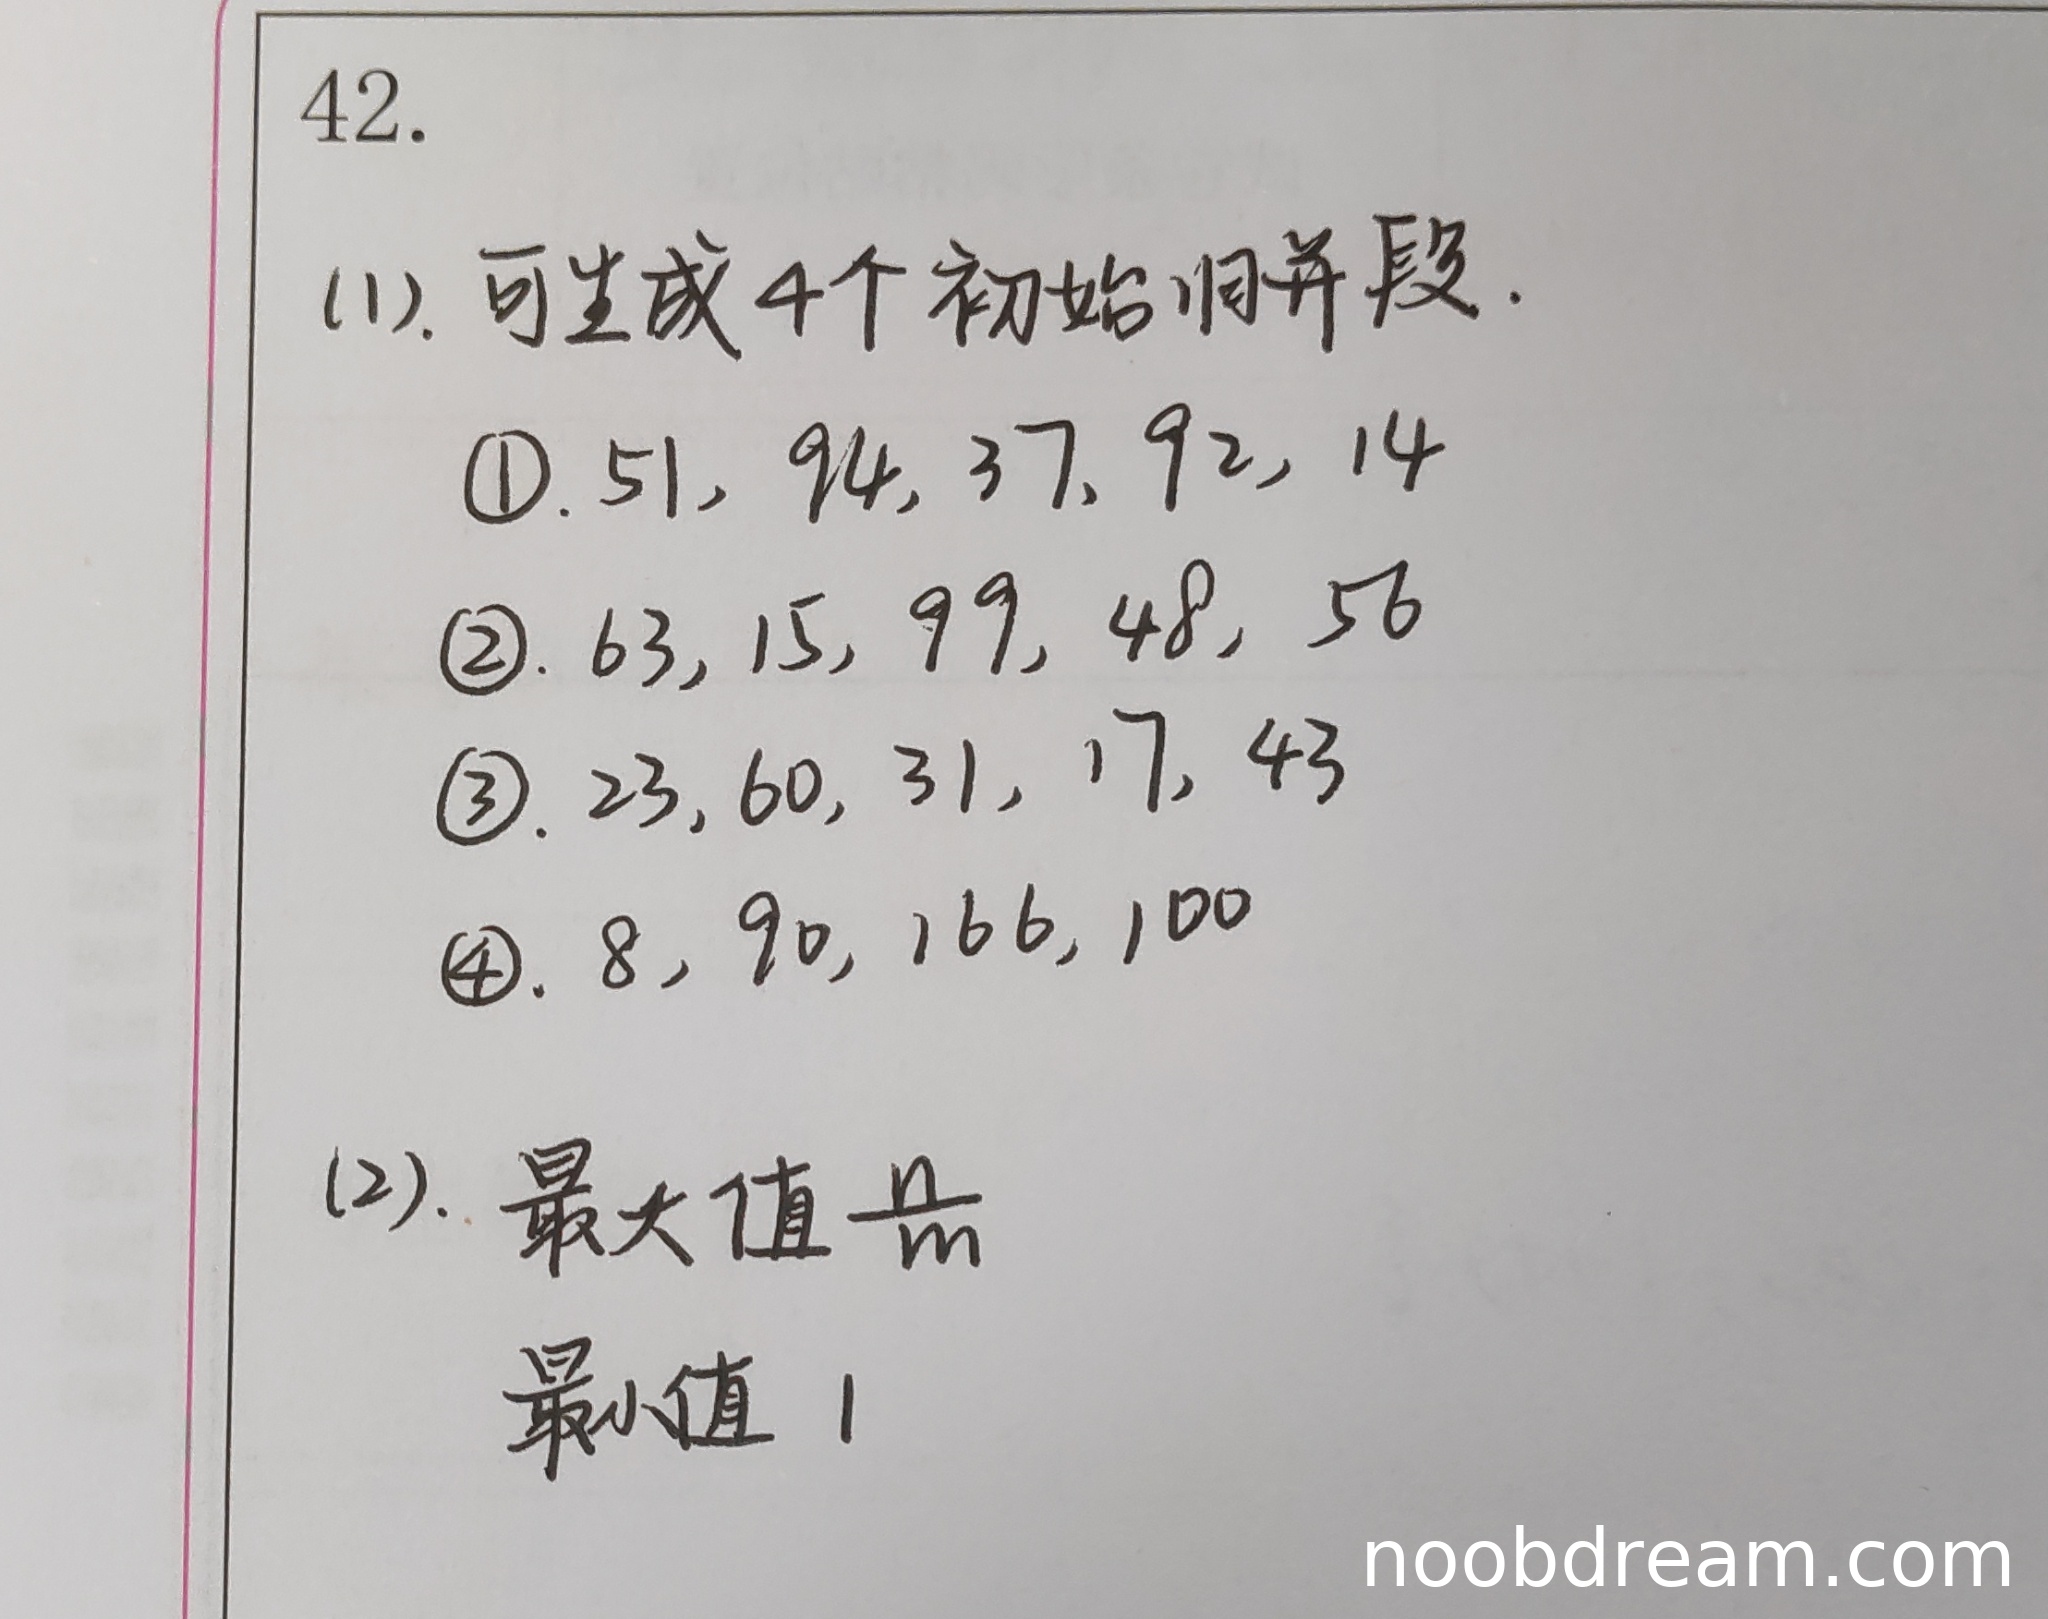 42.
(1). 可生成4个初始归并段.
①. 51, 94, 37, 92, 14
②. 63, 15, 99, 48, 56
③. 23, 60, 31, 17, 43
④. 8, 90, 166, 100
(2). 最大值 n/m
最小值 1
noobdream.com